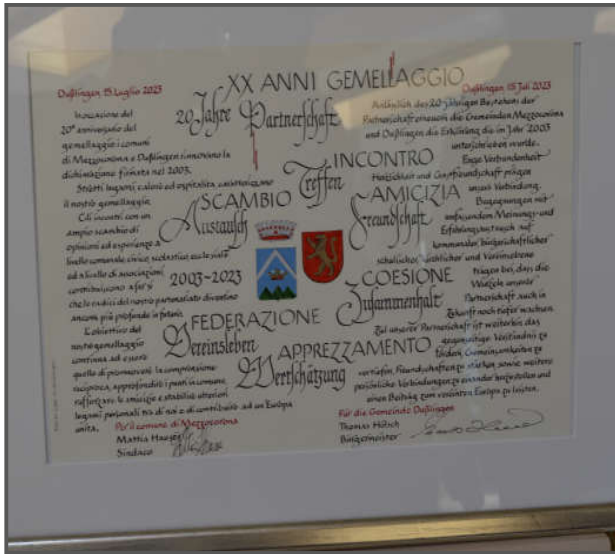 Deßlingen 15 Luglio 2023
XX ANNI GEMELLAGGIO
20 Jahre Partnerschaft
Deßlingen 15 Juli 2023
In occasione del
20° anniversario del
gemellaggio i comuni
di Mezzocorona e Deßlingen rinnovano la
dichiarazione firmata nel 2003.
Stretti legami, calore ed ospitalità caratterizzano
il nostro gemellaggio.
Gli incontri con un
ampio scambio di
opinioni ed esperienze a
livello comunale civico, scolastico, ecclesiale
ed a livello di associazioni
contribuiscono a far sì
che le radici del nostro partenariato diventino
ancora più profonde in futuro.
L'obiettivo del
nostro gemellaggio
continua ad essere
quello di promuovere la comprensione
reciproca, approfondire i punti in comune,
rafforzare le amicizie e stabilire ulteriori
legami personali tra di noi e di contribuire ad un'Europa
unita.
INCONTRO
Treffen
SCAMBIO
Austausch
AMICIZIA
Freundschaft
2003-2023
COESIONE
Zusammenhalt
FEDERAZIONE
Vereinsleben
APPREZZAMENTO
Wertschätzung
Anläßlich des 20-jährigen Bestehens der
Partnerschaft erneuern die Gemeinden Mezzocorona
und Deßlingen die Erklärung die im Jahr 2003
unterschrieben wurde.
Enge Verbundenheit
Herzlichkeit und Gastfreundschaft prägen
unsere Verbindung.
Begegnungen mit
umfassenden Meinungs- und
Erfahrungsaustausch auf
kommunaler, bürgerschaftlicher
schulischer, kirchlicher und Vereinsebene
tragen bei, dass die
Wurzeln unserer
Partnerschaft auch in
Zukunft noch tiefer wachsen.
Ziel unserer Partnerschaft ist weiterhin das
gegenseitige Verständnis zu
fördern, Gemeinsamkeiten zu
vertiefen, Freundschaften zu stärken sowie weitere
persönliche Verbindungen zu einander herzustellen und
einen Beitrag zum vereinten Europa zu leisten.
Per il comune di Mezzocorona
Mattia Hauser
Sindaco
Für die Gemeinde Deßlingen
Thomas Hölsch
Bürgermeister